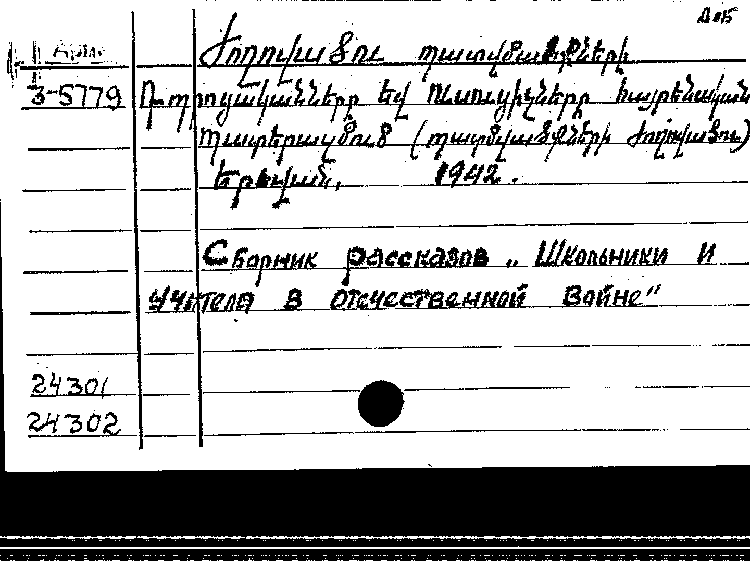 Арм.
Ժողովածու պատվածքների
3-5779 Դպրոցականները եվ ուսուցիչները հայրենական
պատերազմում (պատմվածքների ժողովածու)
Երեվան, 1942.
Сборник рассказов „Школьники и
учителя в отечественной войне"
24301
24302